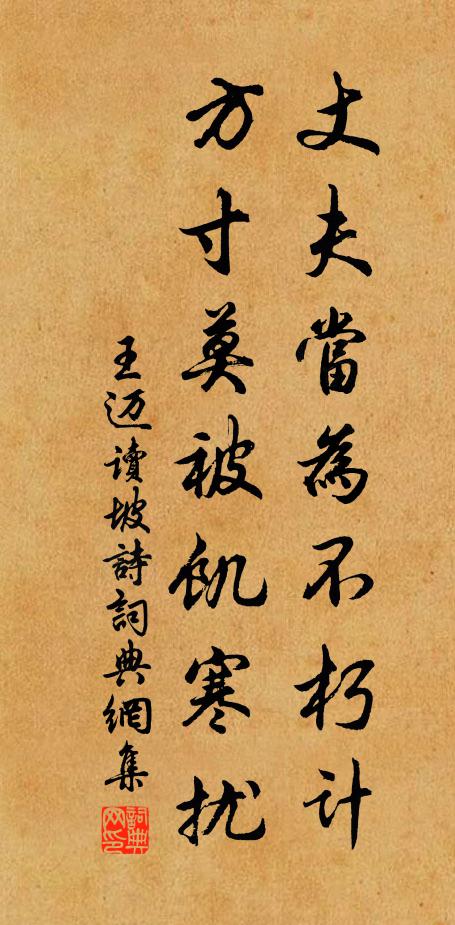 丈夫當為不朽計
方寸莫被飢寒扰
王迈讀坡詩詞典網集
詞典网印